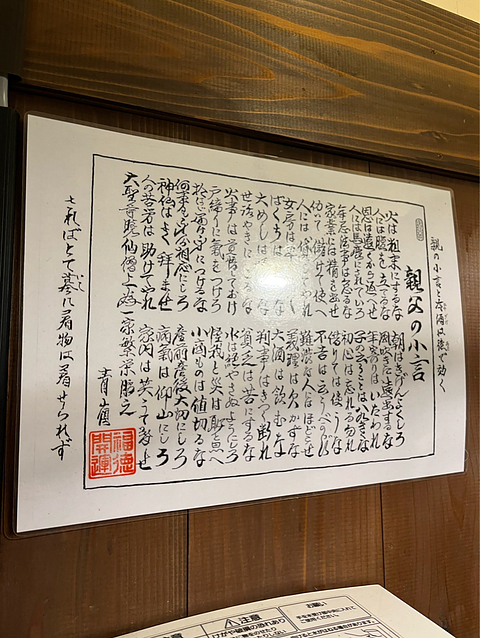 親の小言と冷酒は後で効く
親父の小言
火は粗末にするな 朝はきげんよくしろ
人には腹を立てるな 風吹きに遠出するな
恩は遠くから返へせ 年寄りはいたわれ
人には馬鹿にされていろ 子の云うことは八九きくな
年忌法事は怠るな 初心は忘れる勿れ
家業には精を出せ 借りては使うな
働いて儲けて使へ 不吉は云うべからず
人には貸してやれ 難渋な人にはほどこせ
女房は早くもて 義理は欠かすな
ばくちはうつな 大酒は呑むな
大めしは喰うな 判事はきつく断れ
世話やきになるな 貧乏は苦にするな
火事は覚悟しておけ 水は絶やさぬようにしろ
戸締りに気をつけろ 怪我と災は恥と思へ
拾わば届け身につけるな 小商ものは値切るな
何事も身分相応にしろ 産前産後大切にしろ
神仏はよく拝ませ 病気は仰山にしろ
人の苦労は助けてやれ 家内は笑うて暮せ
大聖寺暁仙僧上 為一家繁栄
福徳開運
さればとて墓に着物は着せられず
注意
注意
お願い